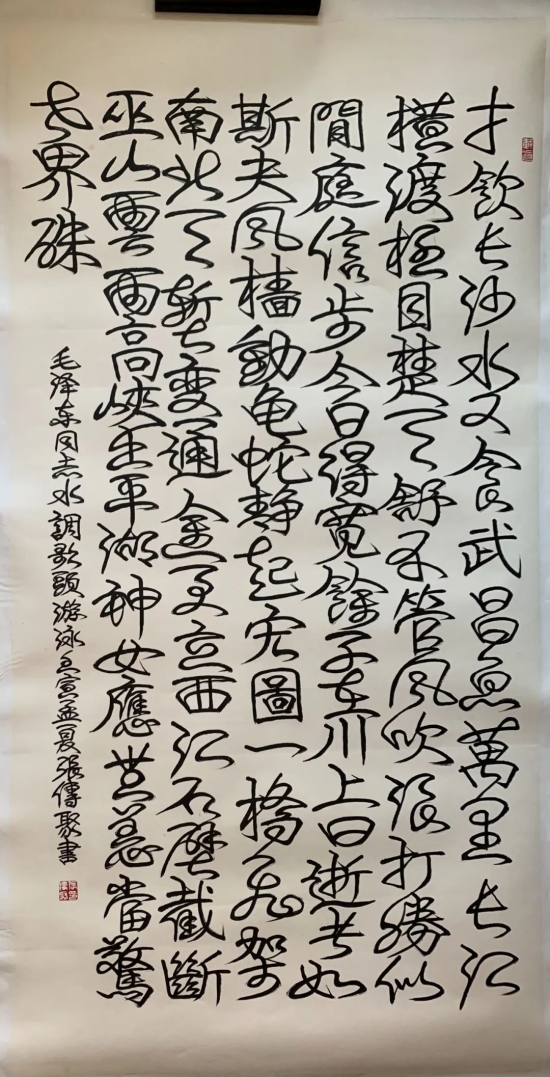 才飲长沙水又食武昌鱼萬里长江
橫渡极目楚天舒不管风吹浪打勝似
閒庭信步今日得寬餘子在川上曰逝者如
斯夫风檣動龟蛇静起宏圖一橋飛架
南北天塹變通途更立西江石壁截斷
巫山雲雨高峽出平湖神女應無恙當驚
世界殊
毛泽东同志水調歌頭游泳壬寅孟夏張傳聚書